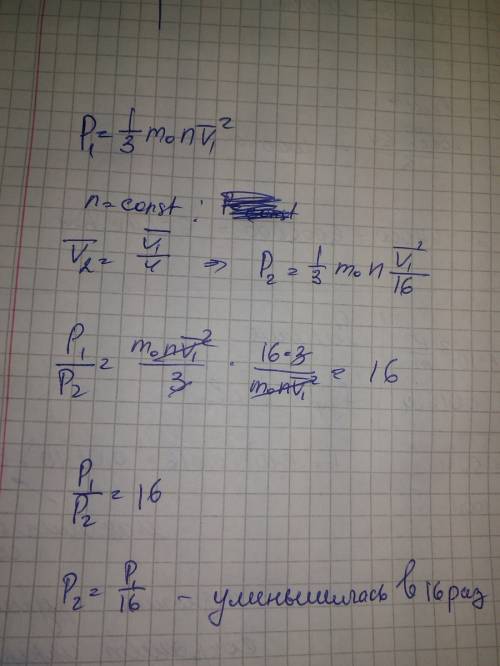 P₁ = 1/3 m₀ n V̅₁²
n = const :
V̅₂ = V̅₁/4 ⇒ P₂ = 1/3 m₀ n V̅₁²/16
P₁/P₂ = m₀nV̅₁²/3 · 16·3/m₀nV̅₁² = 16
P₁/P₂ = 16
P₂ = P₁/16 – уменьшилась в 16 раз